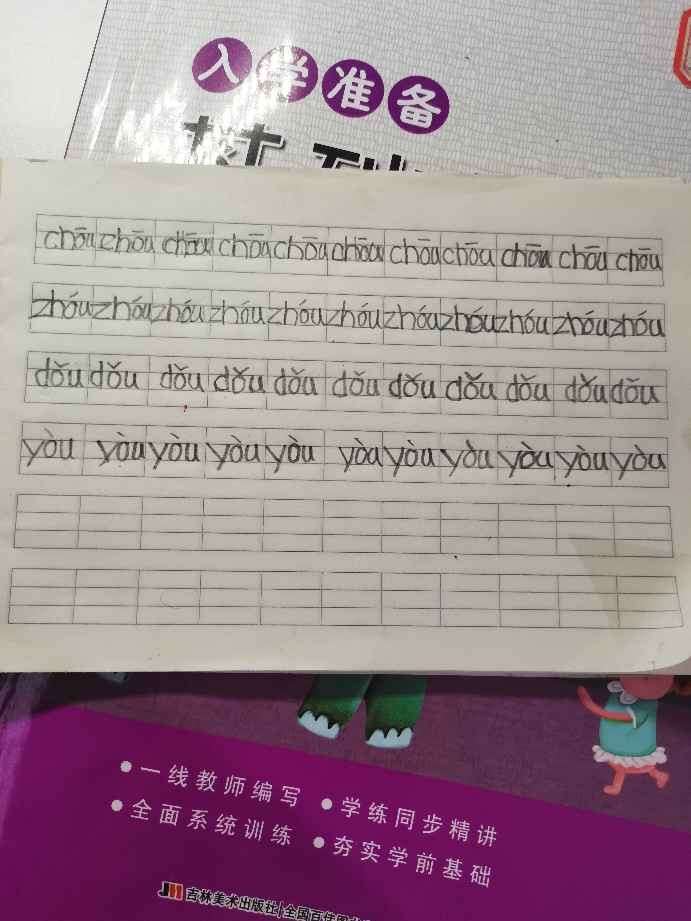 入学准备
chōu zhōu chōu chōu chōu chōu chōu chōu chōu chōu chōu
zhóu zhóu zhóu zhóu zhóu zhóu zhóu zhóu zhóu zhóu zhóu
dǒu dǒu dǒu dǒu dǒu dǒu dǒu dǒu dǒu dǒu dǒu
yòu yòu yòu yòu yòu yòu yòu yòu yòu yòu yòu
●一线教师编写 ●学练同步精讲
●全面系统训练 ●夯实学前基础
JM 吉林美术出版社|全国百佳图